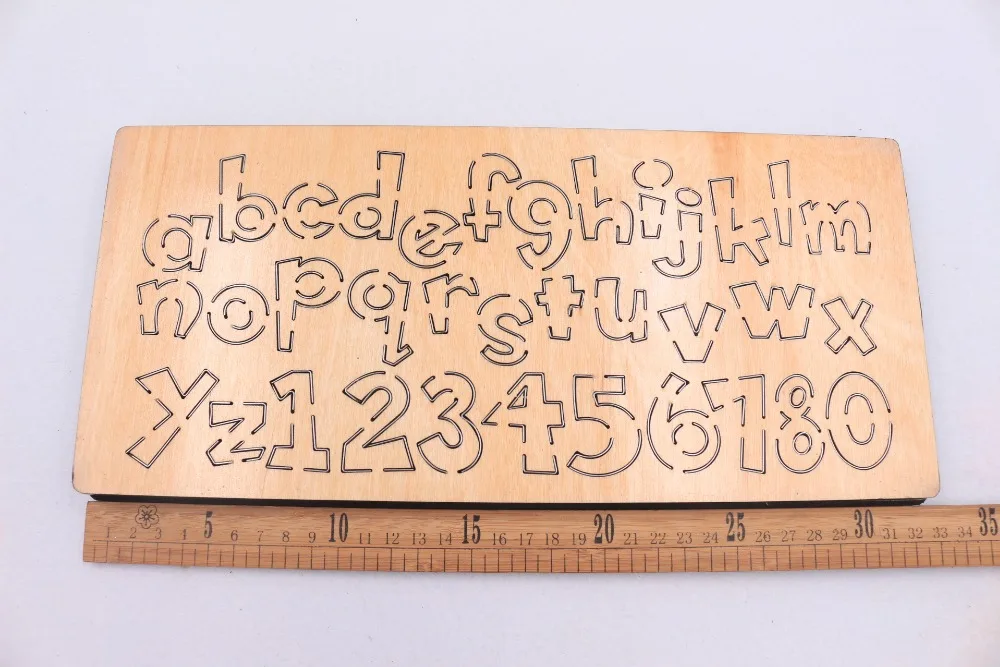 abcdefghijklm
nopqrstuvwx
yz123456780
1 2 3 4 5 6 7 8 9 10 11 12 13 14 15 16 17 18 19 20 21 22 23 24 25 26 27 28 29 30 31 32 33 34 35